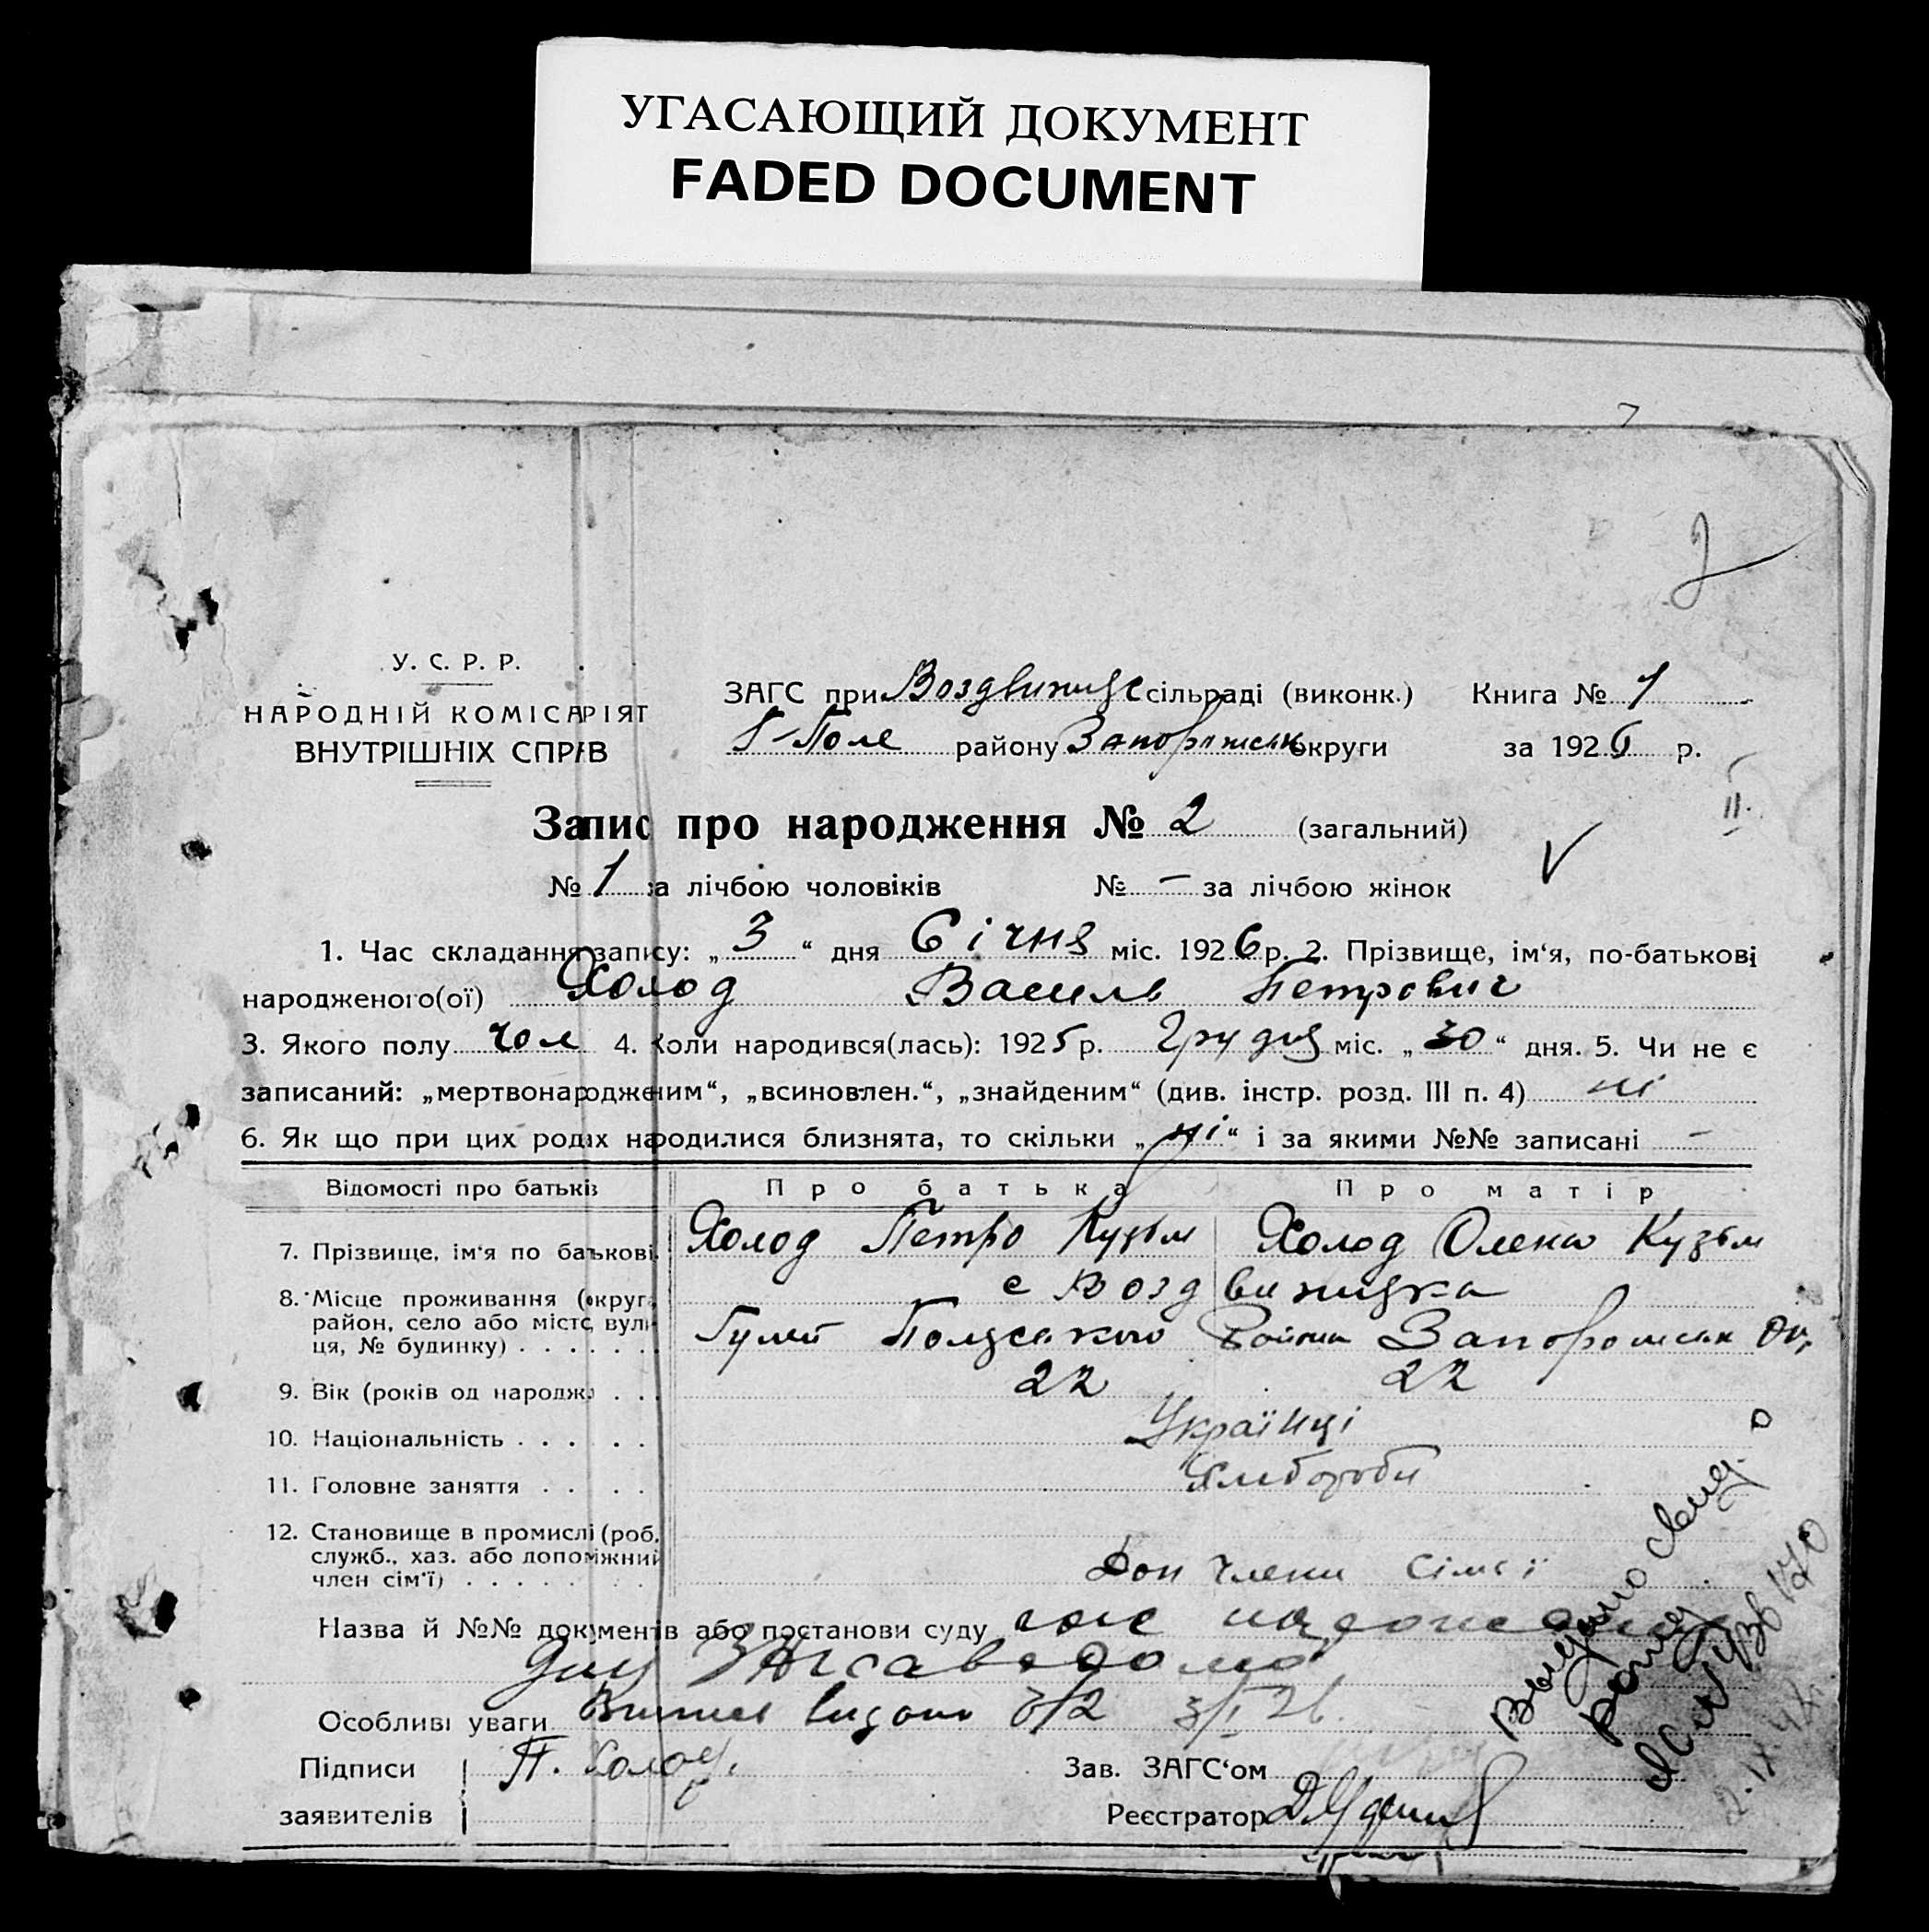 УГАСАЮЩИЙ ДОКУМЕНТ
FADED DOCUMENT
2
У. С. Р. Р.
НАРОДНІЙ КОМІСАРІЯТ
ВНУТРІШНІХ СПРАВ
ЗАГС при Воздвижцс сільраді (виконк.) Книга № 1
Г-Поле району Запорожськ округи за 1926 р.
Запис про народження № 2 (загальний)
№ 1 за лічбою чоловіків № — за лічбою жінок
1. Час складання запису: „ 3 “ дня Січня міс. 1926 р. 2. Прізвище, ім‘я, по-батькові
народженого(ої) Холод Василь Петрович
3. Якого полу чол 4. Коли народився(лась): 1925 р. Грудня міс. „ 30 “ дня. 5. Чи не є
записаний: „мертвонародженим“, „всиновлен.“, „знайденим“ (див. інстр. розд. III п. 4) ні
6. Як що при цих родах народилися близнята, то скільки „ ні “ і за якими №№ записані —
Відомості про батьків Про батька Про матір
7. Прізвище, ім‘я по батькові Холод Петро Кузьм Холод Олена Кузьм
8. Місце проживання (округ, с Воздвижцка
район, село або місто, вули-
ця, № будинку) . . . . . . . Гуляй Польського Района Запорожськ Ок,
9. Вік (років од народж. . . . 22 22
10. Національність . . . . . Українці
11. Головне заняття . . . . Хлібороби
12. Становище в промислі (роб.
служб., хаз. або допоміжний
член сім‘ї) . . . . . . . Доп члени Сімьї
Назва й №№ документів або постанови суду
Особливі уваги видано 3/I 26.
Підписи П. Холод. Зав. ЗАГС‘ом
заявителів Реєстратор
Выдано